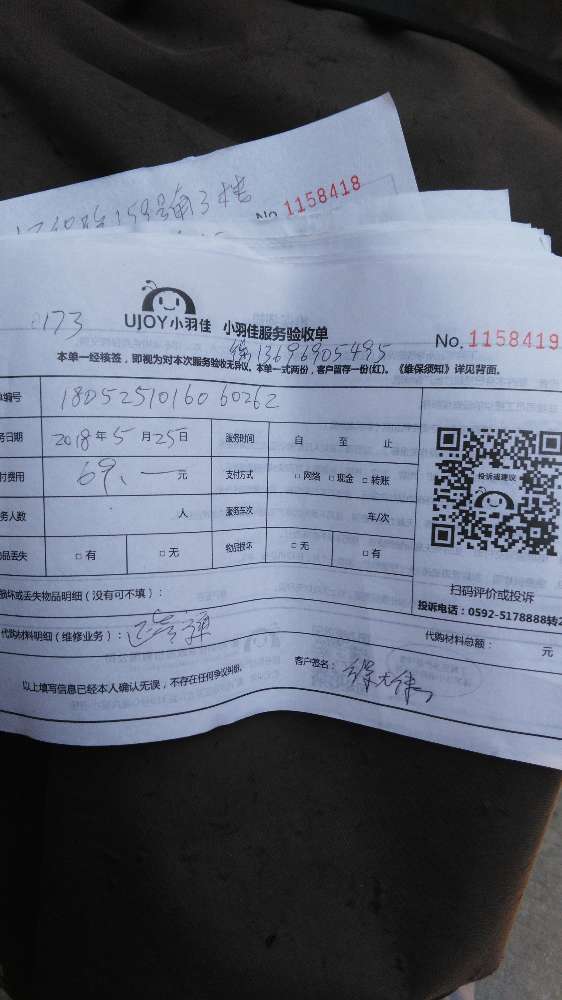 159号南3楼
No. 1158418
173
UJOY小羽佳 小羽佳服务验收单
No. 1158419
13696905495
本单一经核签，即视为对本次服务验收无异议。本单一式两份，客户留存一份(红)。《维保须知》详见背面。
单编号 180525101606 0262
务日期 2018年5月25日 服务时间 自 至 止
付费用 69.一元 支付方式 □网络 □现金 □转账
务人数 人 服务车次 车/次
品丢失 □有 □无 物品损坏 □无 □有
投诉或建议
扫码评价或投诉
投诉电话：0592-5178888转2
损坏或丢失物品明细（没有可不填）：
代购材料明细（维修业务）： 代购材料总额： 元
以上填写信息已经本人确认无误，不存在任何争议纠纷。 客户签名：